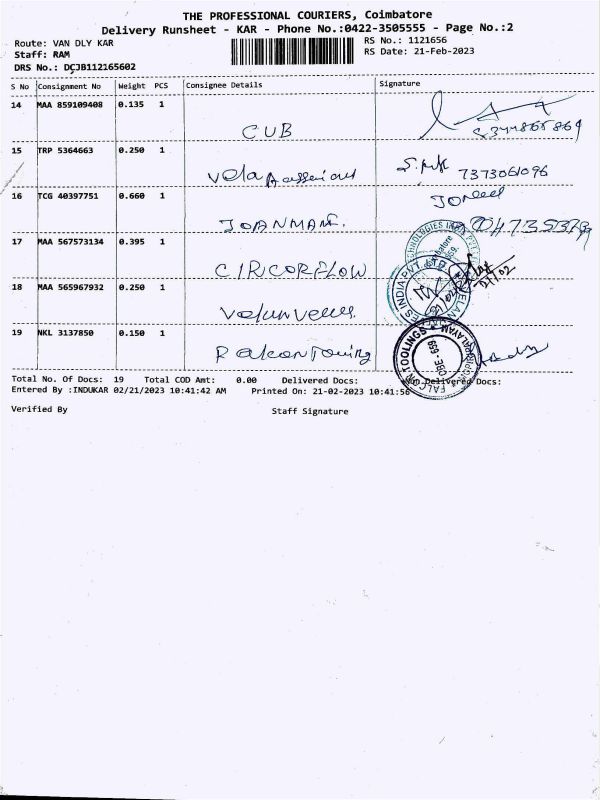 THE PROFESSIONAL COURIERS, Coimbatore
Delivery Runsheet - KAR - Phone No.:0422-3505555 - Page No.:2
Route: VAN DLY KAR
RS No.: 1121656
Staff: RAM
RS Date: 21-Feb-2023
DRS No.: DCJB112165602
S No Consignment No Weight PCS Consignee Details Signature
14 MAA 859109408 0.135 1
CUB
15 TRP 5364663 0.250 1
7373061096
16 TCG 40397751 0.660 1
17 MAA 567573134 0.395 1
CIRCORFLOW
18 MAA 565967932 0.250 1
19 NKL 3137850 0.150 1
FALCON TOOLINGS
CBE - 659
Total No. Of Docs: 19 Total COD Amt: 0.00 Delivered Docs: Non Delivered Docs:
Entered By :INDUKAR 02/21/2023 10:41:42 AM Printed On: 21-02-2023 10:41:56
Verified By Staff Signature